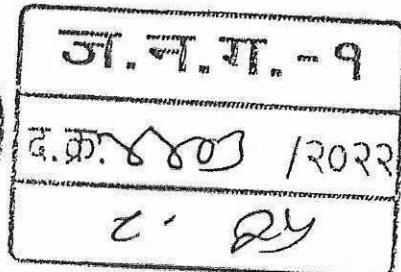 ज.न.ग.-१
द.क्र. ४४०३ /२०२२
८. २५